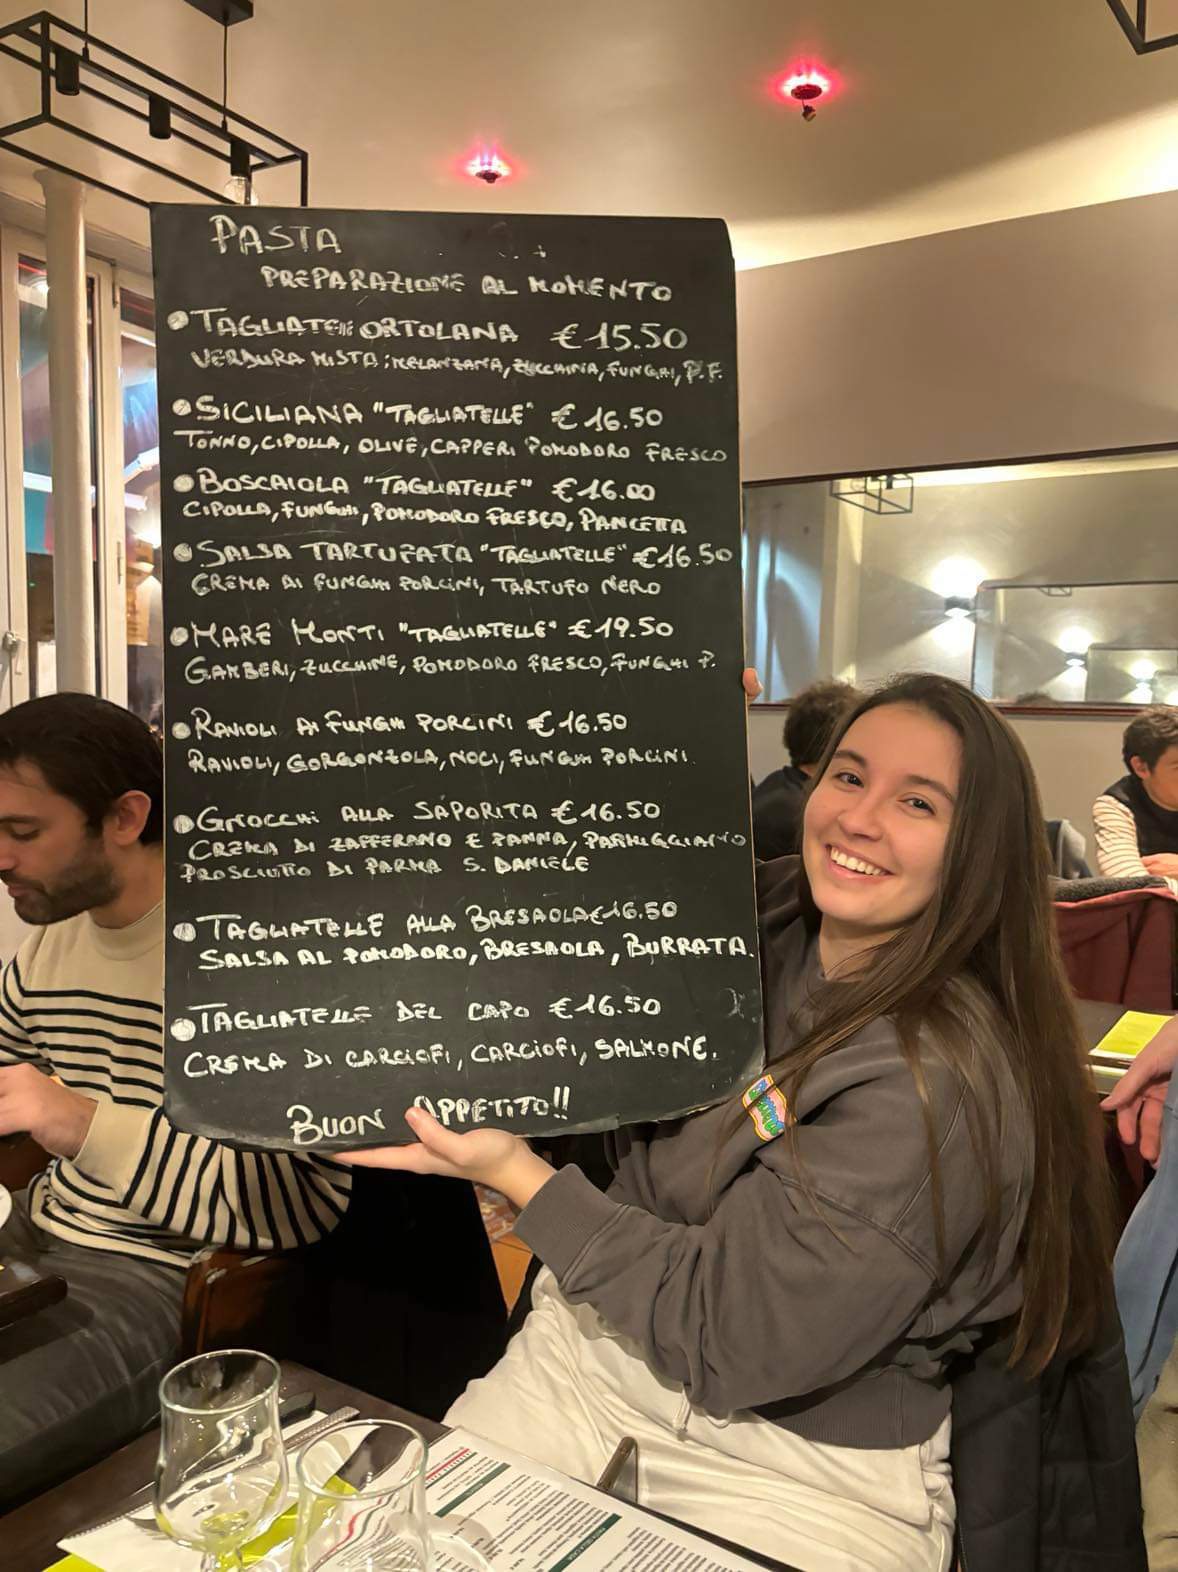 PASTA
PREPARAZIONE AL MOMENTO
TAGLIATELLE ORTOLANA €15.50
VERDURA MISTA; MELANZANA, ZUCCHINA, FUNGHI, P.F.
SICILIANA "TAGLIATELLE" €16.50
TONNO, CIPOLLA, OLIVE, CAPPERI POMODORO FRESCO
BOSCAIOLA "TAGLIATELLE" €16.00
CIPOLLA, FUNGHI, POMODORO FRESCO, PANCETTA
SALSA TARTUFATA "TAGLIATELLE" €16.50
CREMA DI FUNGHI PORCINI, TARTUFO NERO
MARE MONTI "TAGLIATELLE" €19.50
GAMBERI, ZUCCHINE, POMODORO FRESCO, FUNGHI P.
RAVIOLI AI FUNGHI PORCINI €16.50
RAVIOLI, GORGONZOLA, NOCI, FUNGHI PORCINI.
GNOCCHI ALLA SAPORITA €16.50
CREMA DI ZAFFERANO E PANNA, PARMIGGIANO
PROSCIUTTO DI PARMA S. DANIELE
TAGLIATELLE ALLA BRESAOLA €16.50
SALSA AL POMODORO, BRESAOLA, BURRATA.
TAGLIATELLE DEL CAPO €16.50
CREMA DI CARCIOFI, CARCIOFI, SALMONE.
BUON APPETITO!!